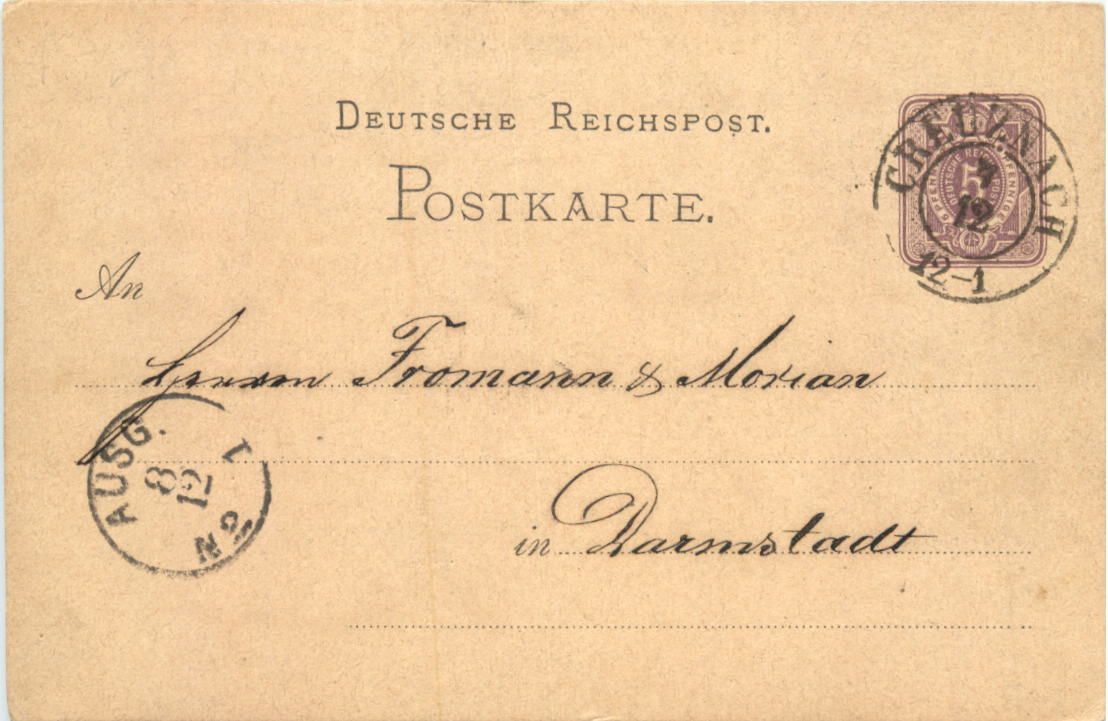 DEUTSCHE REICHSPOST.
POSTKARTE.
CREUZNACH
7
12
12-1
DEUTSCHE REICHSPOST
5 PFENNIGE
5
An
Herren Fromann & Morian
AUSG.
8
12
1
No
in Darmstadt